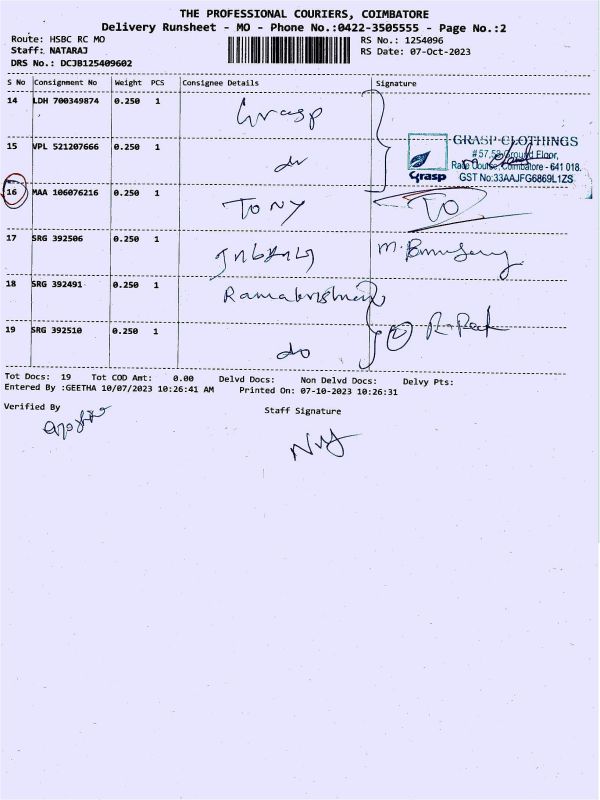 THE PROFESSIONAL COURIERS, COIMBATORE
Delivery Runsheet - MO - Phone No.:0422-3505555 - Page No.:2
Route: HSBC RC MO
RS No.: 1254096
Staff: NATARAJ
RS Date: 07-Oct-2023
DRS No.: DCJB125409602
S No Consignment No Weight PCS Consignee Details Signature
14 LDH 700349874 0.250 1 Grasp
GRASP CLOTHINGS
15 VPL 521207666 0.250 1 do
#57,58 Ground Floor,
Race Course, Coimbatore - 641 018.
Grasp GST No:33AAJFG6869L1ZS
16 MAA 106076216 0.250 1 TONY TO
17 SRG 392506 0.250 1 M.
18 SRG 392491 0.250 1 Ramakrishnan
19 SRG 392510 0.250 1 do
Tot Docs: 19 Tot COD Amt: 0.00 Delvd Docs: Non Delvd Docs: Delvy Pts:
Entered By :GEETHA 10/07/2023 10:26:41 AM Printed On: 07-10-2023 10:26:31
Verified By Staff Signature